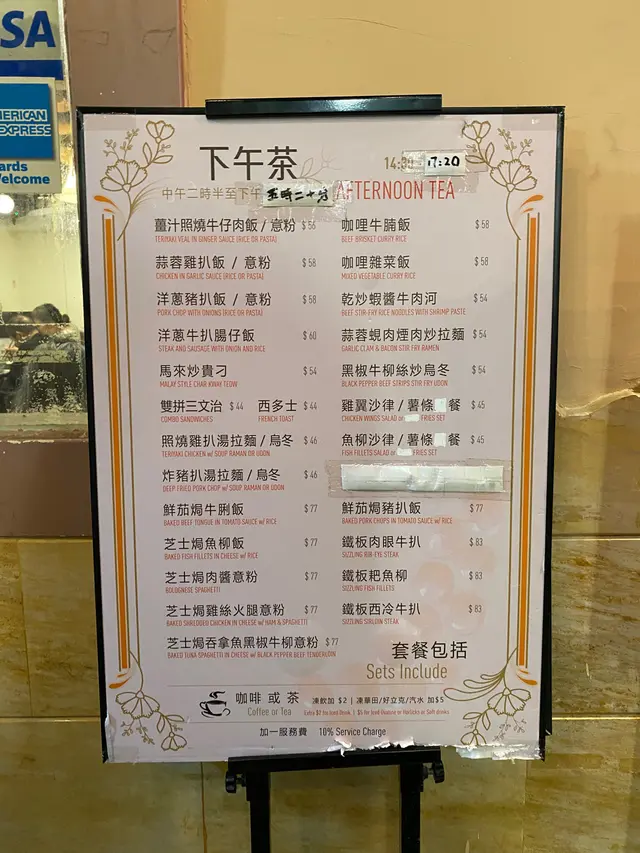 SA
AMERICAN
EXPRESS
ards
Welcome
下午茶
14:30
17:20
中午二時半至下午 五時二十分
AFTERNOON TEA
薑汁照燒牛仔肉飯 / 意粉 $56
TERIYAKI VEAL IN GINGER SAUCE (RICE OR PASTA)
蒜蓉雞扒飯 / 意粉 $58
CHICKEN IN GARLIC SAUCE (RICE OR PASTA)
洋蔥豬扒飯 / 意粉 $58
PORK CHOP WITH ONIONS (RICE OR PASTA)
洋蔥牛扒腸仔飯 $60
STEAK AND SAUSAGE WITH ONION AND RICE
馬來炒貴刁 $54
MALAY STYLE CHAR KWAY TEOW
雙拼三文治 $44 西多士 $44
COMBO SANDWICHES FRENCH TOAST
照燒雞扒湯拉麵 / 烏冬 $46
TERIYAKI CHICKEN w/ SOUP RAMAN OR UDON
炸豬扒湯拉麵 / 烏冬 $46
DEEP FRIED PORK CHOP w/ SOUP RAMAN OR UDON
鮮茄焗牛脷飯 $77
BAKED BEEF TONGUE IN TOMATO SAUCE w/ RICE
芝士焗魚柳飯 $77
BAKED FISH FILLETS IN CHEESE w/ RICE
芝士焗肉醬意粉 $77
BOLOGNESE SPAGHETTI
芝士焗雞絲火腿意粉 $77
BAKED SHREDDED CHICKEN IN CHEESE w/ HAM & SPAGHETTI
芝士焗吞拿魚黑椒牛柳意粉 $77
BAKED TUNA SPAGHETTI IN CHEESE w/ BLACK PEPPER BEEF TENDERLOIN
咖哩牛腩飯 $58
BEEF BRISKET CURRY RICE
咖哩雜菜飯 $58
MIXED VEGETABLE CURRY RICE
乾炒蝦醬牛肉河 $54
BEEF STIR-FRY RICE NOODLES WITH SHRIMP PASTE
蒜蓉蜆肉煙肉炒拉麵 $54
GARLIC CLAM & BACON STIR FRY RAMEN
黑椒牛柳絲炒烏冬 $54
BLACK PEPPER BEEF STRIPS STIR FRY UDON
雞翼沙律 / 薯條 餐 $45
CHICKEN WINGS SALAD or FRIES SET
魚柳沙律 / 薯條 餐 $45
FISH FILLETS SALAD or FRIES SET
鮮茄焗豬扒飯 $77
BAKED PORK CHOPS IN TOMATO SAUCE w/ RICE
鐵板肉眼牛扒 $83
SIZZLING RIB-EYE STEAK
鐵板粑魚柳 $83
SIZZLING FISH FILLETS
鐵板西冷牛扒 $83
SIZZLING SIRLOIN STEAK
套餐包括
Sets Include
咖啡 或 茶
Coffee or Tea
凍飲加 $2 | 凍華田/好立克/汽水 加$5
Extra $2 for Iced Drink | $5 for Iced Ovaltine or Horlicks or Soft drinks
加一服務費 10% Service Charge